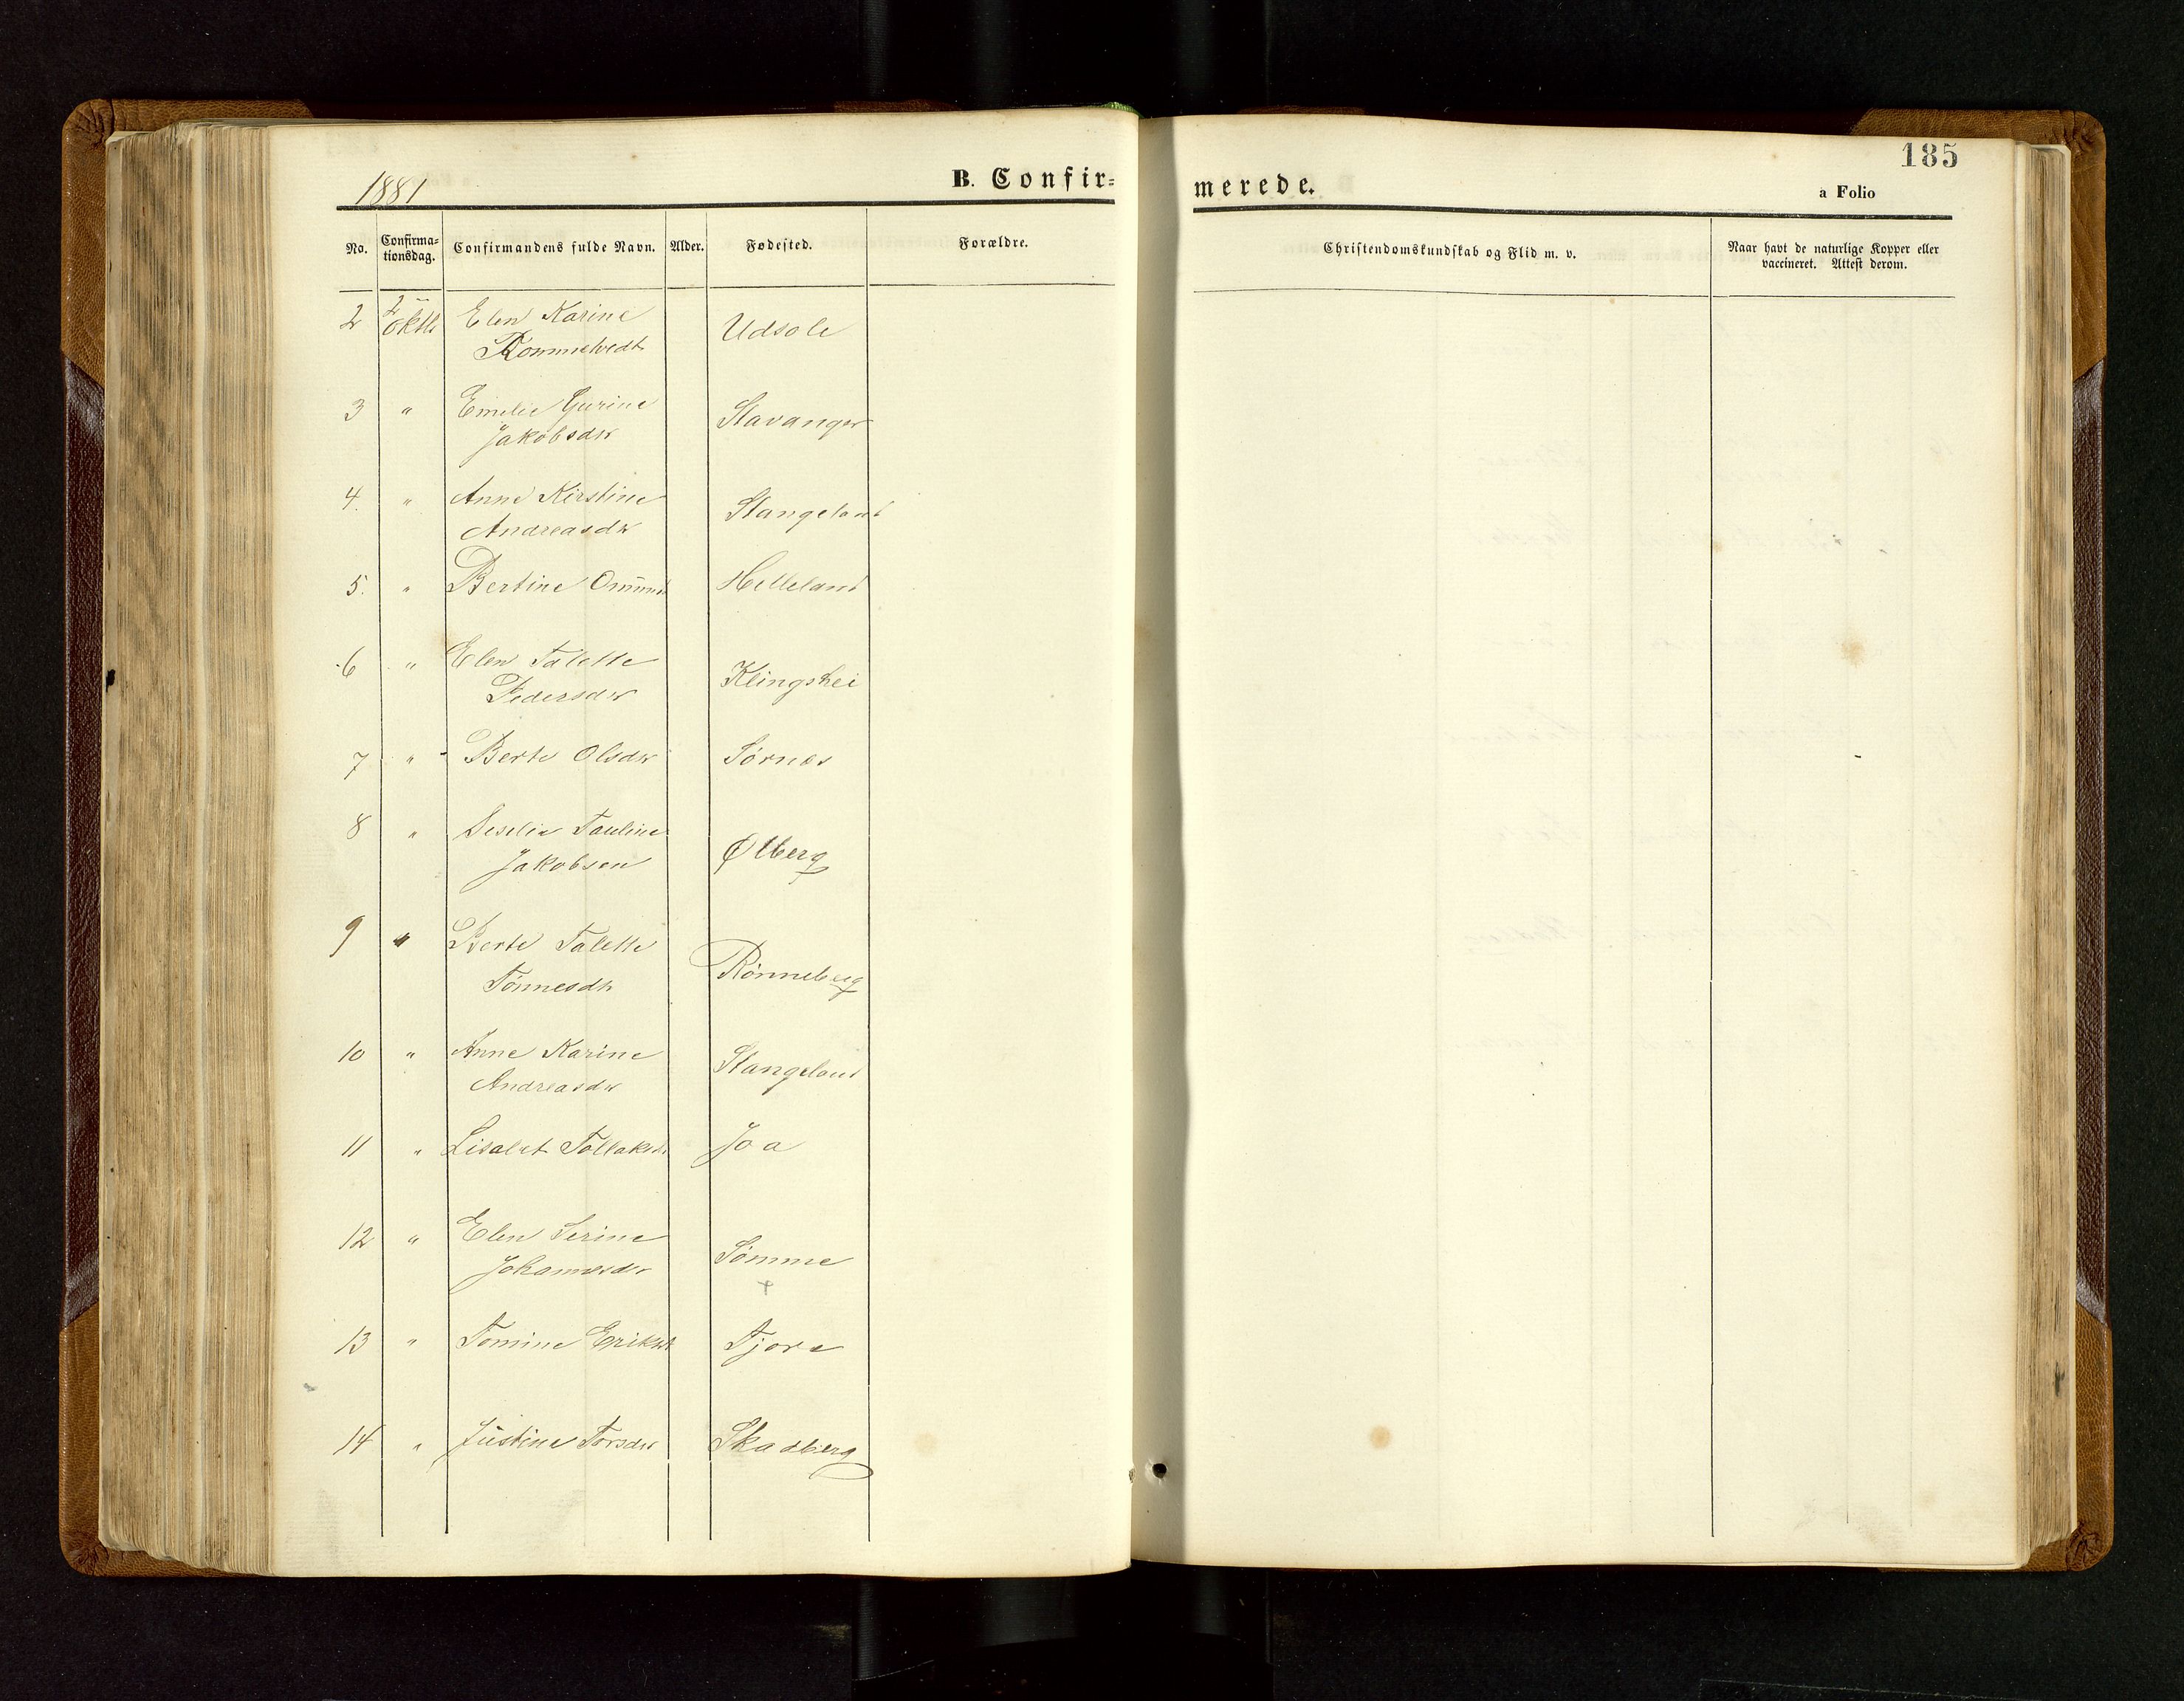 185
1881
B. Confir=
merede.
a Folio
No. Confirma=tionsdag. Confirmandens fulde Navn. Alder. Fødested. Forældre. Christendomskundskab og Flid m. v. Naar havt de naturlige Kopper eller vaccineret. Attest derom.
2 2 Oktb Elen Karine Udsole
Rommetvedt
3 " Emelie Gurine Stavanger
Jakobsdtr
4. " Anne Kirstine Stangeland
Andreasdtr
5. " Bertine Helleland
6 " Elen Talette Klingshei
Pedersdtr
7 " Berte Olsdtr Sørnes
8 " Seselie Pauline Ølberg
Jakobsen
9 " Berte Talette Rønneberg
Tønnesdtr
10 " Anne Karine Stangeland
Andreasdtr
11 " Lisabet Tollaksdtr Joa
12 " Elen Serine Sømme
Johannesdtr
13 " Tomine Eriksdtr Tjora
14 " Justine Torsdtr Skadberg